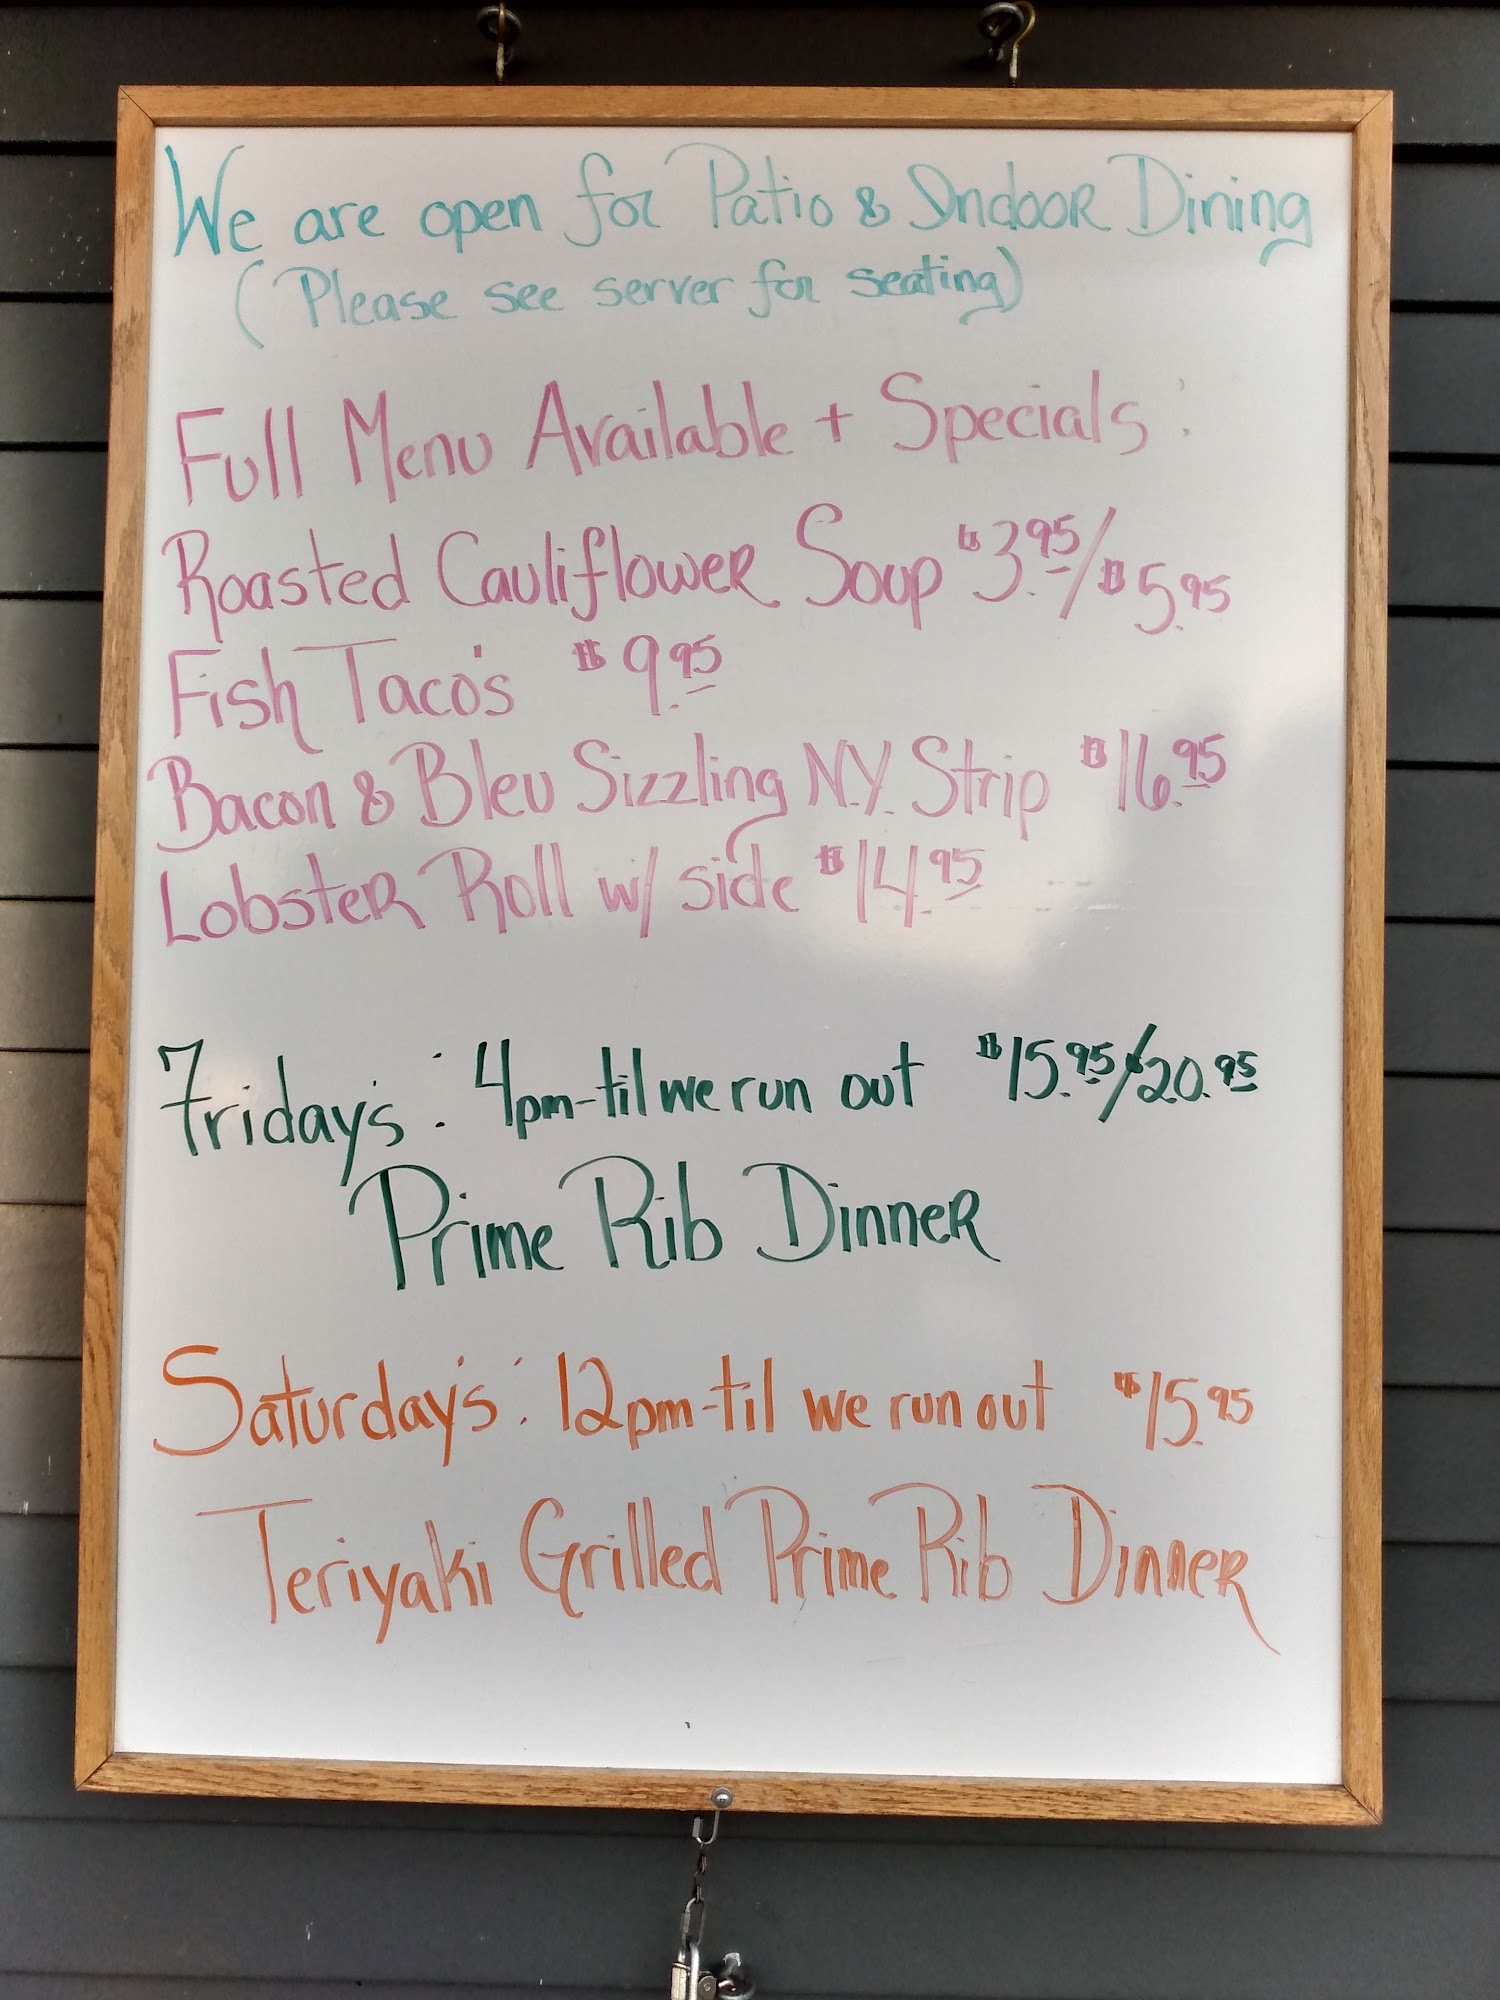 We are open for Patio & Indoor Dining
(Please see server for seating)
Full Menu Available + Specials:
Roasted Cauliflower Soup $3.95/$5.95
Fish Taco's $9.95
Bacon & Bleu Sizzling N.Y. Strip $16.95
Lobster Roll w/ side $14.95
Friday's: 4pm-til we run out $15.95/$20.95
Prime Rib Dinner
Saturday's: 12pm-til we run out $15.95
Teriyaki Grilled Prime Rib Dinner